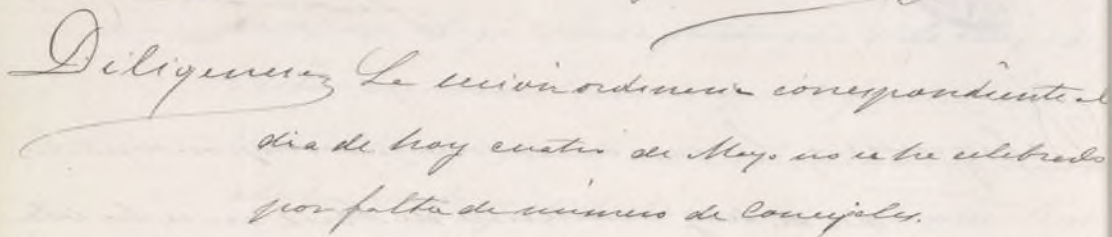 Diligencia La sesion ordinaria correspondiente al
dia de hoy cuatro de Mayo no se ha celebrado
por falta de número de Concejales.